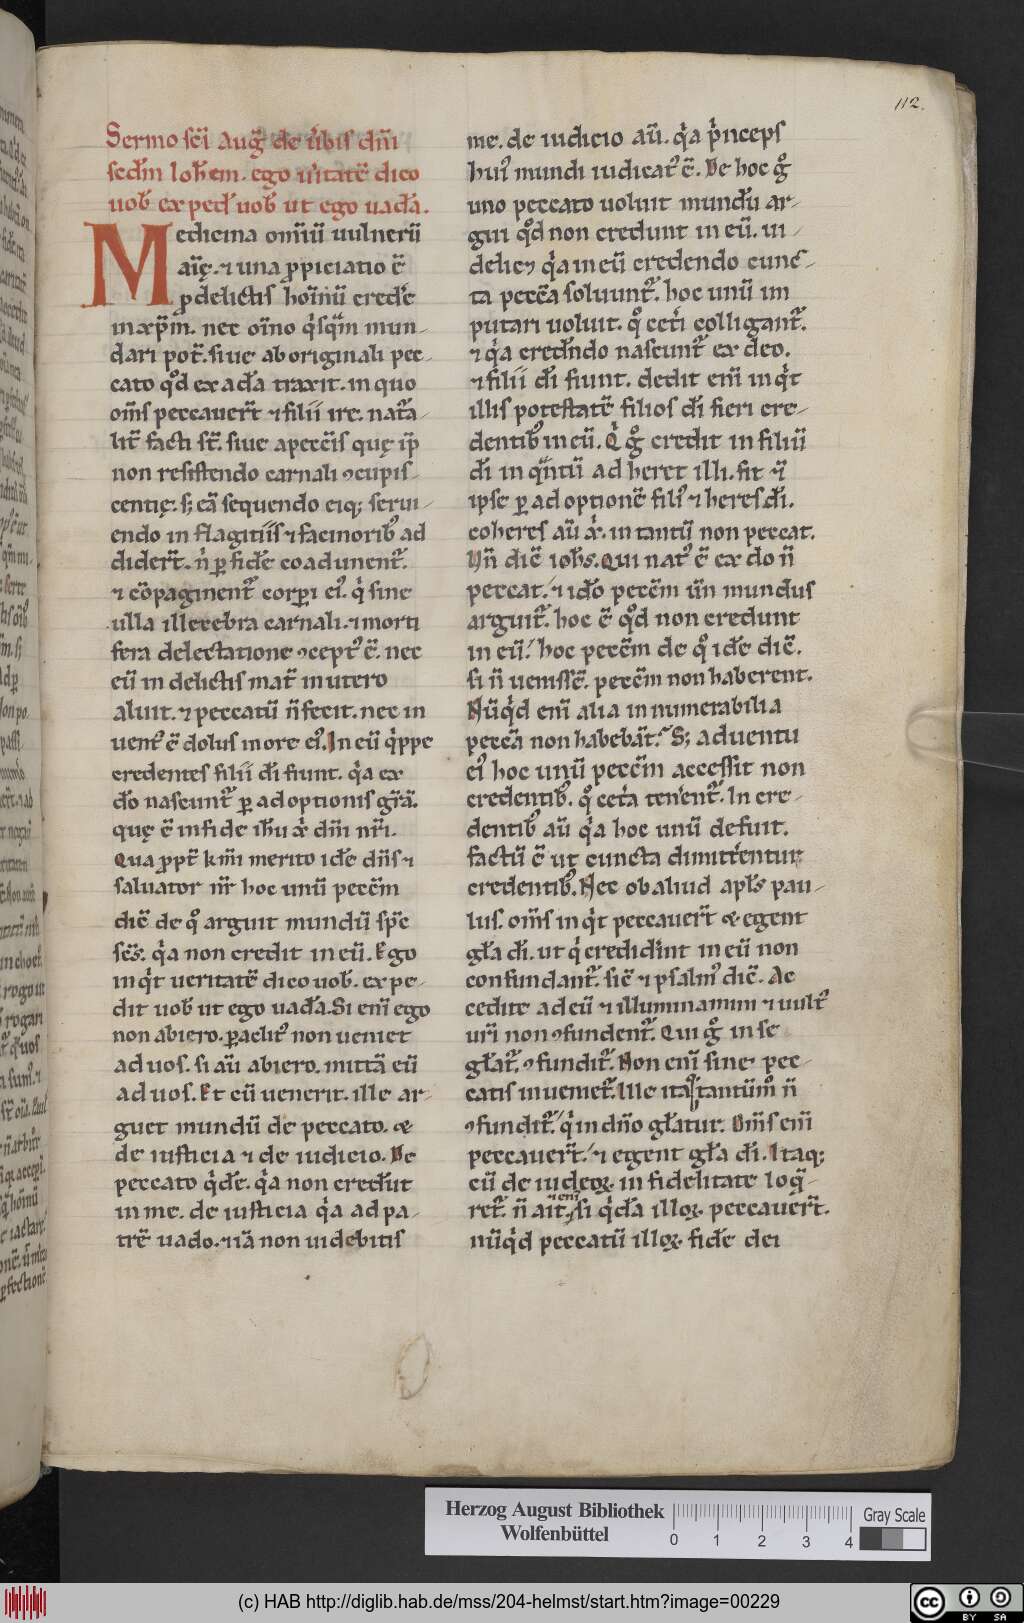 112.
Sermo sc̄i Auḡ de u̇bis dn̄i
sedm̄ Ioh̄em. ego u̇itatē dico
uob̄ expeđ uob̄ ut ego uadā.
Medicina om̄iū uulnerū
aīę. ⁊ una ꝓpiciatio ē
ꝓ delictis hom̄inū credē
in xp̄m̄. nec oīno q̇sq̄m mun-
dari pot̄. siue ab originali pec-
cato qd̄ ex adā traxit. in quo
om̄s peccauer̄t ⁊ filii ire. natā-
lit̄ facti st̄. siue a peccīs quę ip̄i
non resistendo carnali ꝯcupis-
centię. s; eā sequendo eiq; serui-
endo in flagitiis ⁊ facinorib᷒ ad
dider̄t. ṅ ꝑ fidē coadunent᷑.
⁊ cōpaginent᷑ corp̄i ei᷒. q̇ sine
ulla illecebra carnali. ⁊ morti
fera delectatione ꝯcept᷒ ē. nec
eū in delictis mat̄ in utero
aluit. ⁊ peccatū n̄ fecit. nec in
uent᷒ ē dolus in ore ei᷒. In eū q̇ppe
credentes filii dī fiunt. q̇a ex
do nascunt᷑ ꝑ adoptionis gr̄ā.
quę ē in fide ih̄u xṙ dn̄i nr̄i.
Qua ꝓpt̄ km̄i merito idē dn̄s ⁊
saluator nr̄ hoc unū peccm̄
diē de q͛ arguit mundū sp̄c
sc̄s. q̇a non credit in eū. Ego
inq̇t ueritatē dico uob̄. expe-
dit uob̄ ut ego uadā. Si eni̅ ego
non abiero. ꝑaclit᷒ non ueniet
ad uos. si aū abiero. mittā eū
ad uos. Et cū uenerit. ille ar-
guet mundū de peccato. &
de iusticia ⁊ de iudicio. De
peccato q̇dē. q̇a non credūt
in me. de iusticia q̇a ad pa-
trē uado. ⁊ iā non uidebitis
me. de iudicio aū. q̇a ṗnceps
hui᷒ mundi iudicat᷒ ē. De hoc g͛
uno peccato uoluit mundū ar-
gui qd̄ non credunt in eū. ui-
delicꝫ q̇a in eū credendo cunc-
ta peccā soluunt᷑. hoc unū im
putari uoluit. q͛ cetī colligant᷑.
⁊ q̇a credēndo nascunt᷑ ex deo.
⁊ filii dī fiunt. dedit eni̅ inq̇t
illis potestatē filios dī fieri cre-
dentib᷒ in eū. Q̇ g͛ credit in filiū
dī in q̄ntū adheret illi. fit ⁊
ipse ꝑ adoptionē fili᷒ ⁊ heres dī.
coheres aū xṙ. in tantū non peccat.
Vn̄ diē ioh̄s. Qui nat᷒ ē ex do n̄
peccat. ⁊ ido peccm̄ un̄ mundus
arguit᷑. hoc ē qd̄ non credunt
in eū. hoc peccm̄ de q͛ idē diē.
si n̄ uenissē. peccm̄ non haberent.
Nūq̇d eni̅ alia innumerabilia
peccā non habebāt. S; aduentu
ei᷒ hoc unū peccm̄ accessit non
credentib᷒. q͛ ceṫa tenent᷑. In cre-
dentib᷒ aū q̇a hoc unū defuit.
factū ē ut cuncta dimittentur
credentib᷒. Nec ob aliud apls̄ pau-
lus. om̄s inq̇t peccauer̄t & egent
gła dī. ut q̇ credidīnt in eū non
confundant᷑. sic̄ ⁊ psalm᷒ diē. Ac
cedite ad eū ⁊ illuminamini ⁊ uult᷒
uri̅ non ꝯfundent᷑. Qui g͛ in se
głat᷑. ꝯfundit᷑. Non eni̅ sine pec-
catis inuemet᷑. Ille itaꝗ tantūm᷒ n̄
ꝯfundit᷑. q̇ in dn̄o głatur. Om̄s eni̅
peccauer̄t. ⁊ egent gła dī. Itaq;
cū de iudeoꝝ infidelitate loq̄-
ret᷑. n̄ ait. si eni̅ q̇dā illoꝝ peccauer̄t.
nūq̇d peccatū illoꝝ fidē dei
Herzog August Bibliothek
Wolfenbüttel
0 1 2 3 4
Gray Scale
(c) HAB http://diglib.hab.de/mss/204-helmst/start.htm?image=00229
cc BY SA